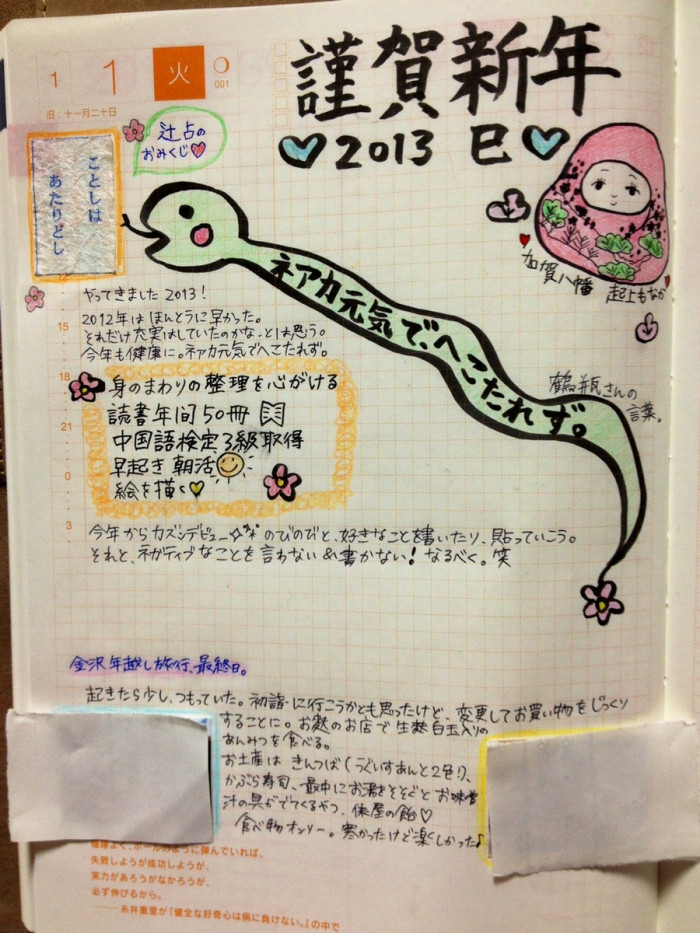 1 1 火 001
旧:十一月二十日
謹賀新年
2013 巳
辻占の
おみくじ♡
ことしは
あたりどし
加賀八幡 起上もなか
ネアカ元気で、へこたれず。
鶴瓶さんの
言葉。
やってきました 2013!
2012年は ほんとうに早かった。
それだけ充実はしていたのかな…とは思う。
今年も健康に。ネアカ元気でへこたれず。
身のまわりの整理を心がける
読書年間50冊
中国語検定3級取得
早起き 朝活
絵を描く
12
15
18
21
0
3
今年からカズンデビュー☆ のびのびと、好きなことを書いたり、貼っていこう。
それと、ネガティブなことを言わない&書かない! なるべく。笑
金沢 年越し旅行、最終日。
起きたら少し、つもっていた。初詣に行こうかとも思ったけど、変更してお買い物をじっくり
することに。お麩のお店で生麩白玉入りの
あんみつを食べる。
お土産は きんつば(うぐいすあんと2色!)、
かぶら寿司、最中にお湯をそそぐとお味噌
汁の具がでてくるやつ、俵屋の飴♡
食べ物オンリー。寒かったけど楽しかった♪
機嫌よく、ボールのように弾んでいれば、
失敗しようが成功しようが、
実力があろうがなかろうが、
必ず伸びるから。
——糸井重里が『健全な好奇心は病に負けない。』の中で